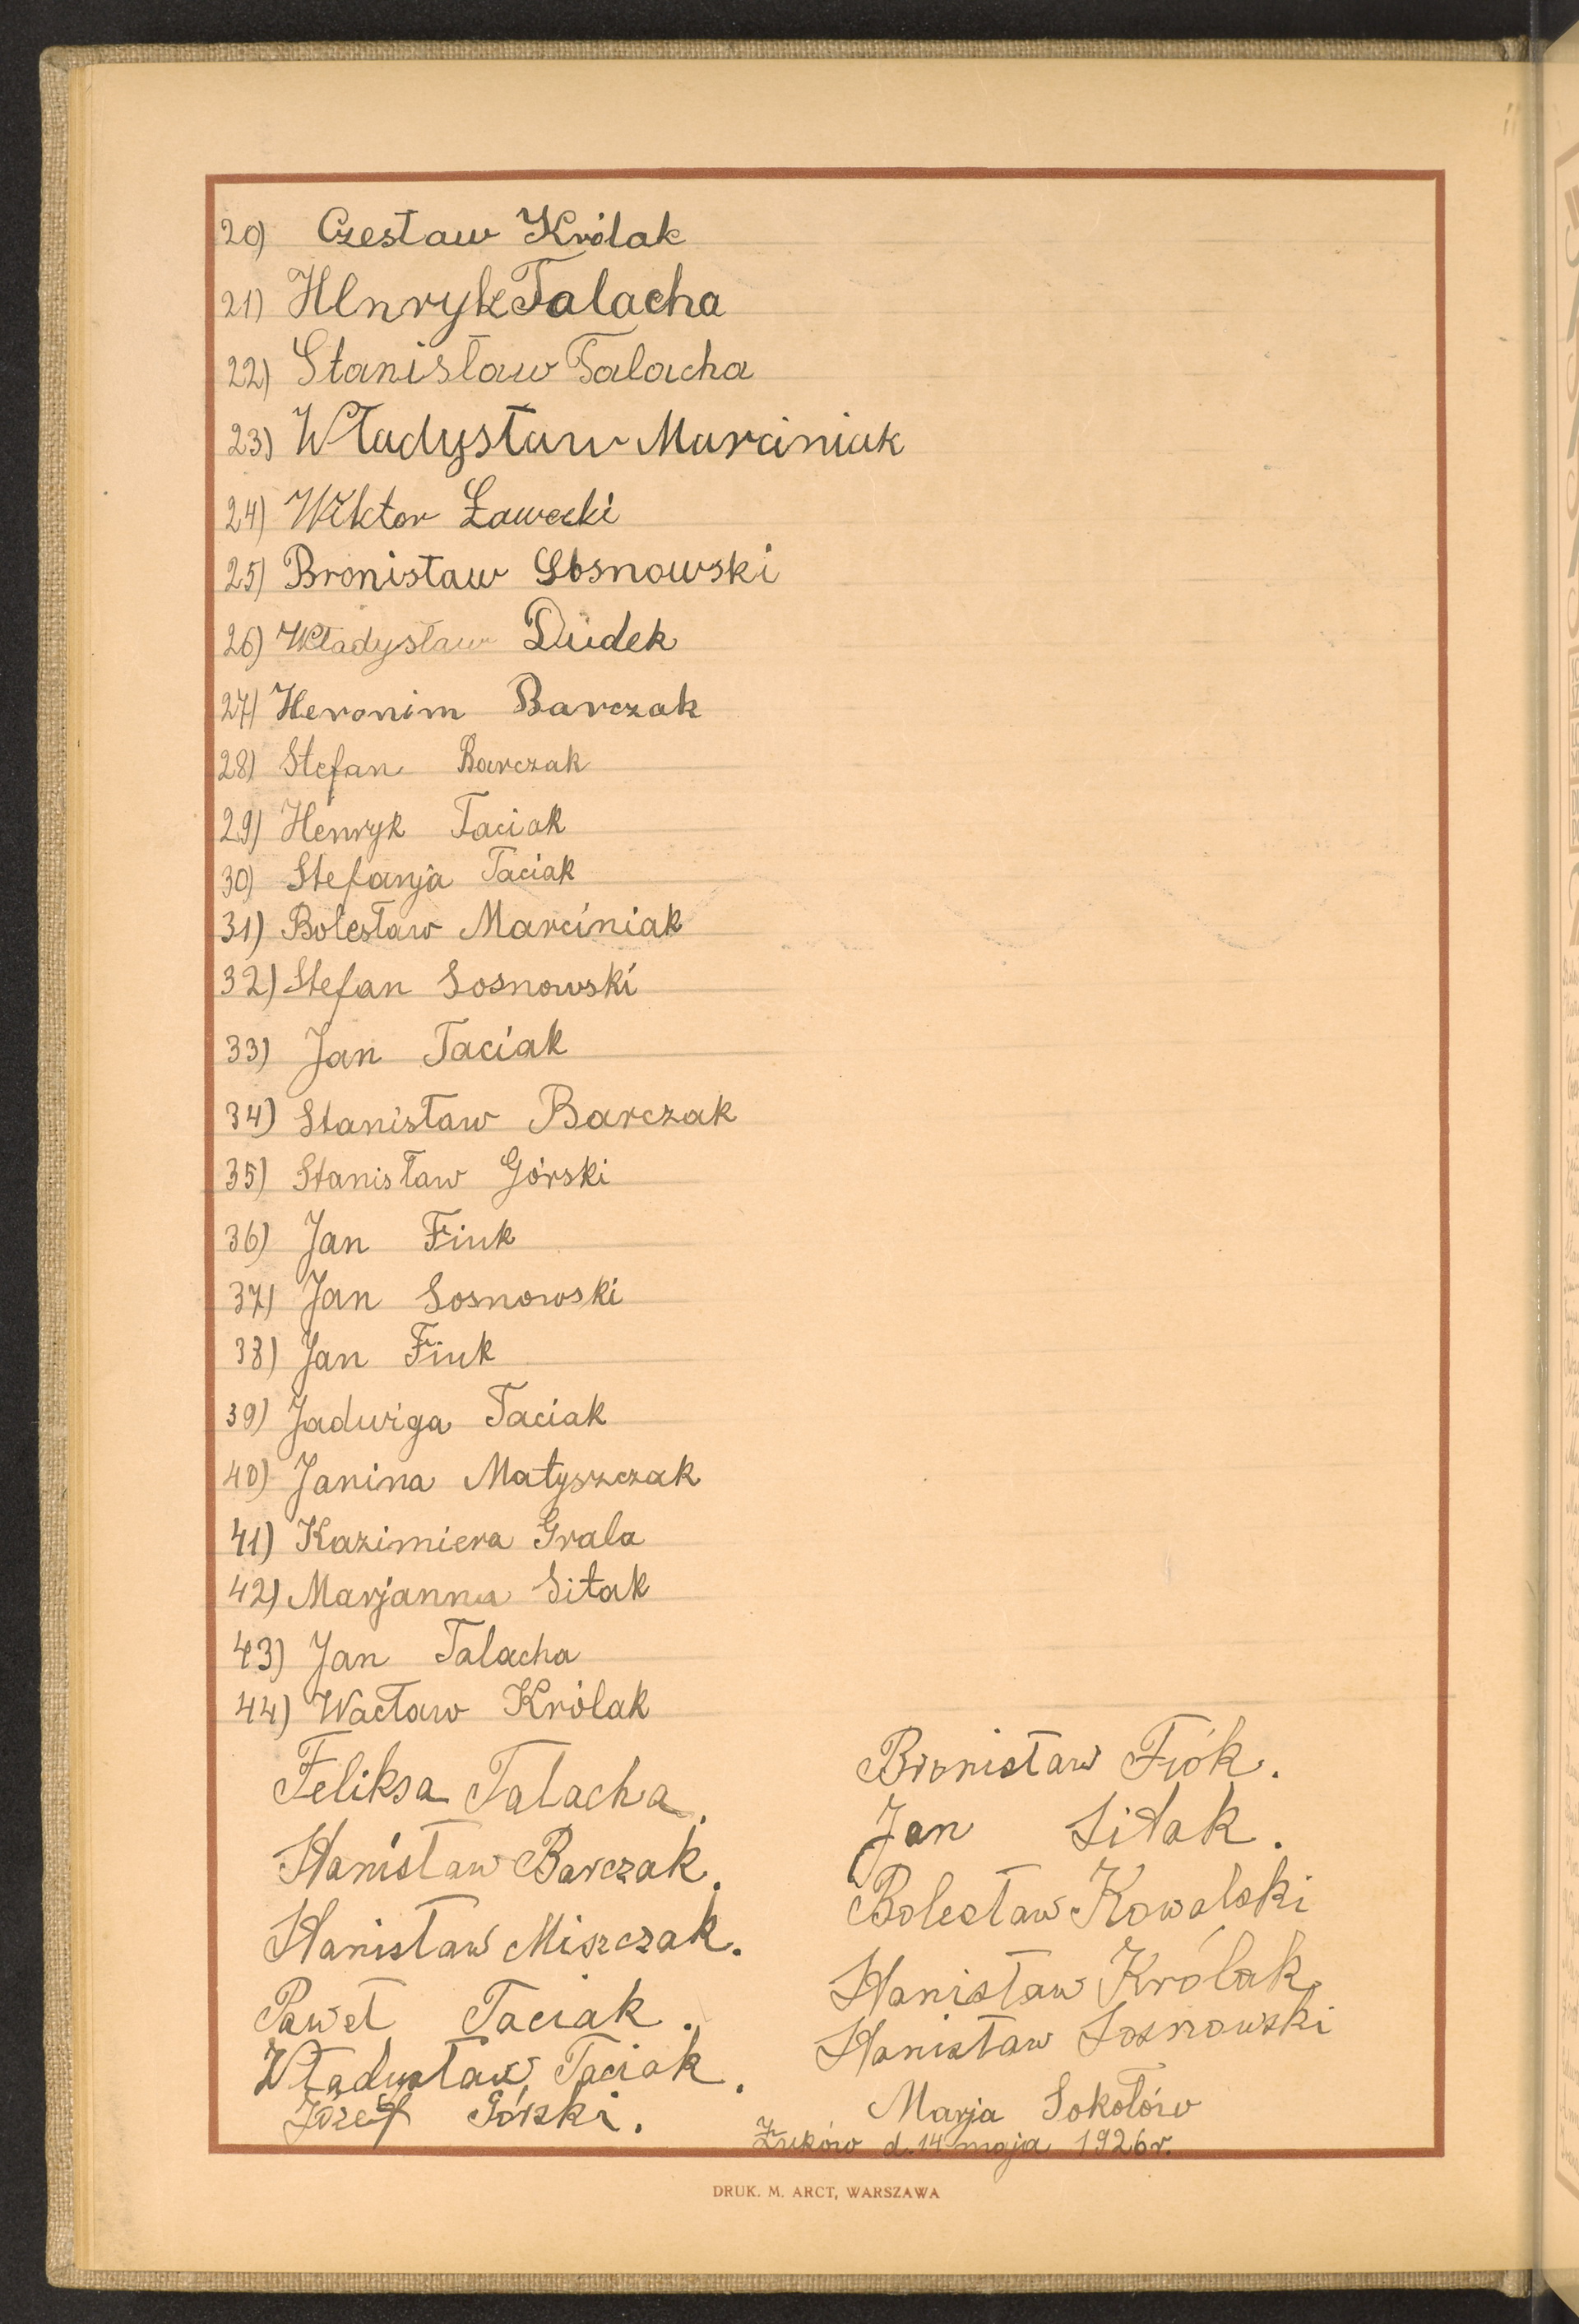 20) Czesław Królak
21) Henryk Talacha
22) Stanisław Talacha
23) Władysław Marciniak
24) Wiktor Ławecki
25) Bronisław Sosnowski
26) Władysław Dudek
27) Heronim Barczak
28) Stefan Barczak
29) Henryk Taciak
30) Stefanja Taciak
31) Bolesław Marciniak
32) Stefan Sosnowski
33) Jan Taciak
34) Stanisław Barczak
35) Stanisław Górski
36) Jan Fiuk
37) Jan Sosnowski
38) Jan Fiuk
39) Jadwiga Taciak
40) Janina Matyszczak
41) Kazimiera Grala
42) Marjanna Sitak
43) Jan Talacha
44) Wacław Królak
Feliksa Talacha.
Stanisław Barczak.
Stanisław Miszczak.
Paweł Taciak.
Władysław Taciak.
Józef Górski.
Bronisław Fiók.
Jan Sitak.
Bolesław Kowalski
Stanisław Królak
Stanisław Sosnowski
Marja Sokołów
Żuków d. 14 maja 1926 r.
DRUK. M. ARCT, WARSZAWA